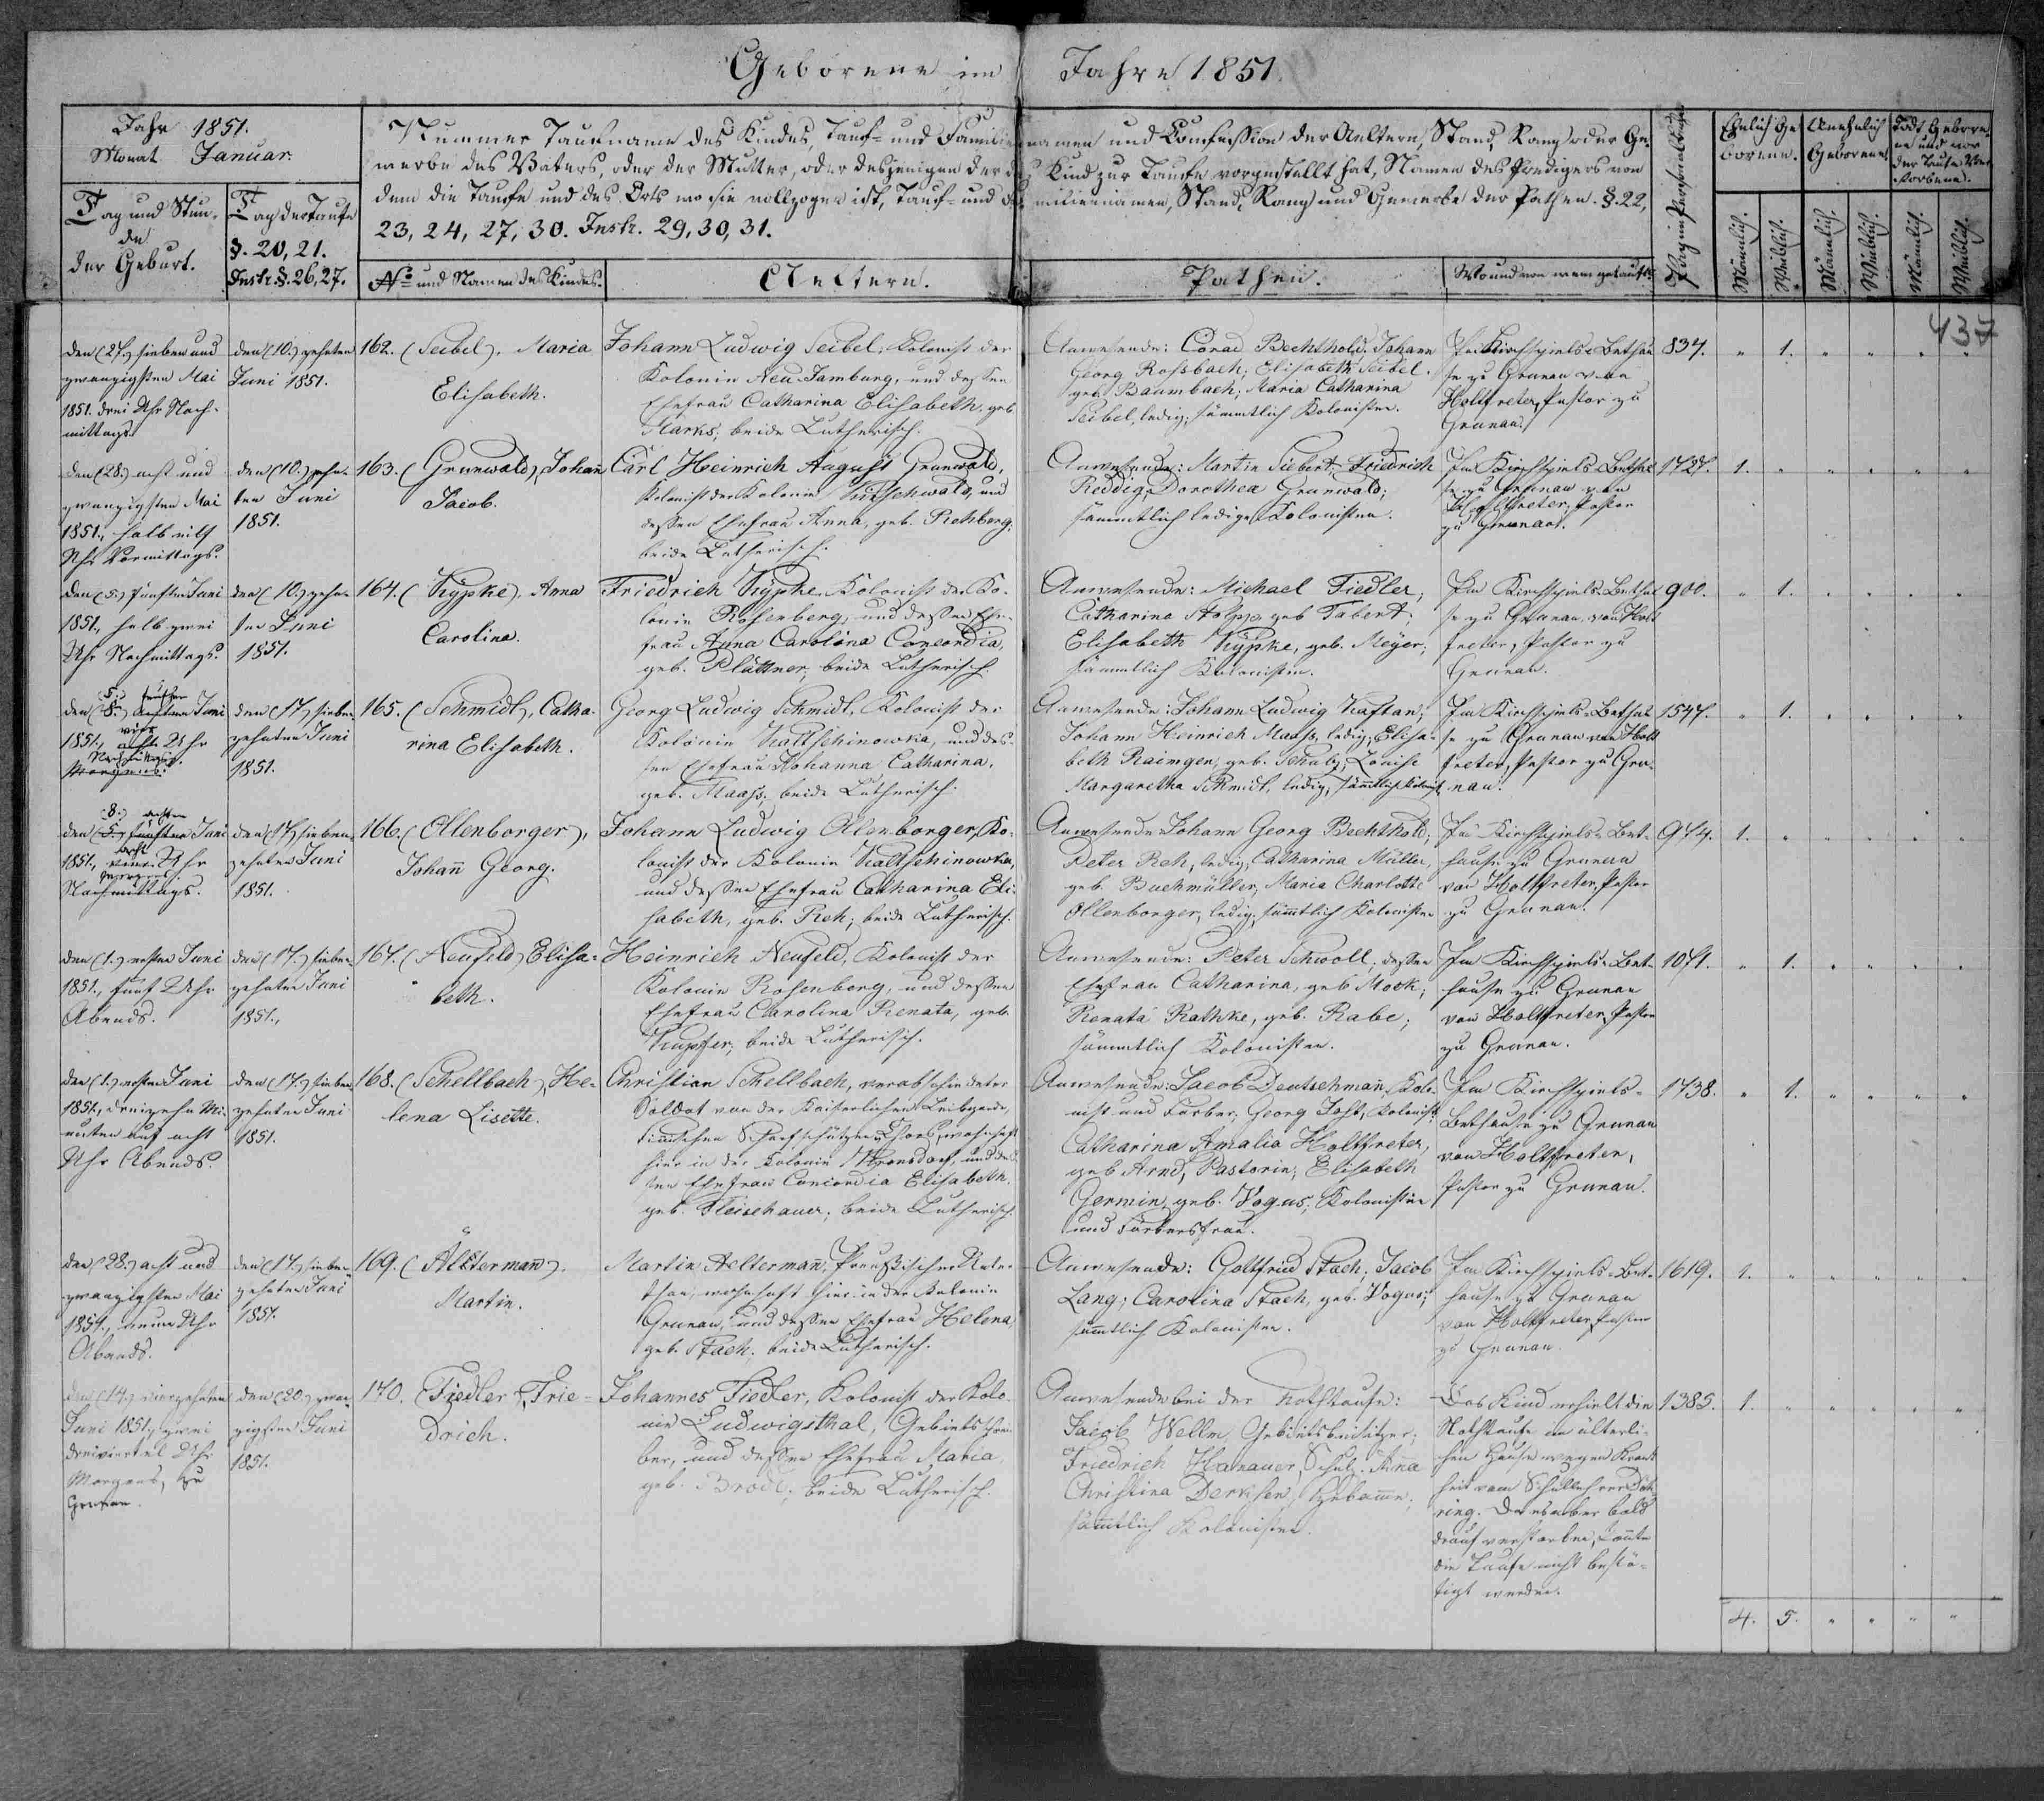 Geborene im Jahre 1851.
437
Jahr 1851.
Monat Januar.
Tag und Stun-
de
der Geburt.
Tag der Taufe
§. 20, 21.
Instr. §. 26, 27.
Nummer Taufname des Kindes, Tauf- und Familiennamen und Confession der Aeltern, Stand, Rang oder Ge-
werbe des Vaters, oder der Mutter, oder desjenigen der das Kind zur Taufe vorgestellt hat, Namen des Predigers von
dem die Taufe und des Orts wo sie vollzogen ist, Tauf- und Familiennamen, Stand, Rang und Gewerbe der Pathen. §. 22,
23, 24, 27, 30. Instr. 29, 30, 31.
No und Namen des Kindes.
Aeltern.
Pathen.
Wo und von wem getauft.
Pagina Personalbuch
Ehelich Ge
borene.
Unehelich
Geborene.
Todt Gebore-
ne und vor
der Taufe Ver-
storbene.
Männlich.
Weiblich.
Männlich.
Weiblich.
Männlich.
Weiblich.
den (27.) sieben und
zwanzigsten Mai
1851. drei Uhr Nach-
mittags.
den (10.) zehnten
Juni 1851.
162. (Seibel), Maria
Elisabeth.
Johann Ludwig Seibel, Kolonist der
Kolonie Neu-Jamburg, und dessen
Ehefrau Catharina Elisabeth, geb.
Marks; beide Lutherisch.
Anwesende: Conrad Bechthold; Johann
Georg Rossbach; Elisabeth Seibel,
geb. Baumbach; Maria Catharina
Seibel, ledig; sämmtlich Kolonisten.
Im Kirchspiels-Bethau-
se zu Grunau von
Holtfreter, Pastor zu
Grunau.
837. " 1. " " " "
den (28.) acht und
zwanzigsten Mai
1851., halb eilf
Uhr Vormittags.
den (10.) zehn-
ten Juni
1851.
163. (Grunwald), Johan
Jacob.
Carl Heinrich August Grunwald,
Kolonist der Kolonie Kirschwald, und
dessen Ehefrau Anna, geb. Rehberg;
beide Lutherisch.
Anwesende: Martin Siebert; Friedrich
Reddig; Dorothea Grunwald;
sämmtlich ledige Kolonisten.
Im Kirchspiels-Bethau
se zu Grunau von
Holtfreter, Pastor
zu Grunau.
1727. 1. " " " " "
den (5.) fünften Juni
1851., halb zwei
Uhr Nachmittags.
den (10.) zehn-
ten Juni
1851.
164. (Kypke), Anna
Carolina.
Friedrich Kypke, Kolonist der Ko-
lonie Rosenberg, und dessen Ehe-
frau Anna Carolina Concordia,
geb. Plättner; beide Lutherisch.
Anwesende: Michael Fiedler;
Catharina Stolpp, geb. Tabert;
Elisabeth Kypke, geb. Meyer;
sämmtlich Kolonisten.
Im Kirchspiels-Bethau
se zu Grunau von Holt
freter, Pastor zu
Grunau.
900. " 1. " " " "
5. fünften
den (8.) achten Juni
vier
1851., acht Uhr
Nachmittags.
Morgens.
den (17.) sieben-
zehnten Juni
1851.
165. (Schmidt), Catha-
rina Elisabeth.
Georg Ludwig Schmidt, Kolonist der
Kolonie Kaltschinowka, und des-
sen Ehefrau Johanna Catharina,
geb. Maass; beide Lutherisch.
Anwesende: Johann Ludwig Kaftan;
Johann Heinrich Maass, ledig; Elisa-
beth Raimgen, geb. Schulz; Louise
Margaretha Schmidt, ledig; sämmtlich Kolonist.
Im Kirchspiels-Bethau
se zu Grunau von Holt
freter, Pastor zu Gru-
nau.
1547. " 1. " " " "
8. achten
den (5.) fünften Juni
acht
1851., vier Uhr
Morgens.
Nachmittags.
den (17.) sieben-
zehnten Juni
1851.
166. (Ollenborger),
Johann Georg.
Johann Ludwig Ollenborger, Ko-
lonist der Kolonie Kaltschinowka,
und dessen Ehefrau Catharina Eli-
sabeth, geb. Reh; beide Lutherisch.
Anwesende: Johann Georg Bechthold;
Peter Reh, ledig; Catharina Müller,
geb. Buchmüller; Maria Charlotte
Ollenborger, ledig; sämmtlich Kolonisten
Im Kirchspiels-Bet-
hause zu Grunau
von Holtfreter, Pastor
zu Grunau.
974. 1. " " " " "
den (1.) ersten Juni
1851., fünf Uhr
Abends.
den (17.) sieben-
zehnten Juni
1851.,
167. (Neufeld) Elisa-
beth.
Heinrich Neufeld, Kolonist der
Kolonie Rosenberg, und dessen
Ehefrau Carolina Renata, geb.
Kupfer; beide Lutherisch.
Anwesende: Peter Schwoll; dessen
Ehefrau Catharina, geb. Mook;
Renata Rathke, geb. Rabe;
sämmtlich Kolonisten.
Im Kirchspiels-Bet-
hause zu Grunau
von Holtfreter, Pastor
zu Grunau.
1071. " 1. " " " "
den (1.) ersten Juni
1851., dreizehn Mi-
nuten auf acht
Uhr Abends.
den (17.) sieben
zehnten Juni
1851.
168. (Schellbach), He-
lena Lisette.
Christian Schellbach, verabschiedeter
Soldat von der Kaiserlichen Leibgarde,
Finnischen Scharfschützen-Chors, wohnhaft
hier in der Kolonie Kronsdorf, und des-
sen Ehefrau Concordia Elisabeth,
geb. Fleischauer; beide Lutherisch.
Anwesende: Jacob Deutschmann, Kolo-
nist und Färber; Georg Jost, Kolonist;
Catharina Amalia Holtfreter,
geb. Arnd, Pastorin; Elisabeth
Germin, geb. Vogus; Kolonistin
und Färbersfrau.
Im Kirchspiels-
Bethause zu Grunau
von Holtfreter,
Pastor zu Grunau.
1738. " 1. " " " "
den (28.) acht und
zwanzigsten Mai
1851., neun Uhr
Abends.
den (17.) sieben-
zehnten Juni
1851.
169. (Älterman),
Martin.
Martin Aelterman, Preußischer Unter-
than, wohnhaft hier in der Kolonie
Grunau, und dessen Ehefrau Helena,
geb. Stach; beide Lutherisch.
Anwesende: Gottfried Stach; Jacob
Lang; Carolina Stach, geb. Vogus;
sämmtlich Kolonisten.
Im Kirchspiels-Bet-
hause zu Grunau
von Holtfreter, Pastor
zu Grunau.
1619. 1. " " " " "
den (14.) vierzehnten
Juni 1851., zwei
dreiviertel Uhr
Morgens, zu
Grunau.
den (20.) zwan-
zigsten Juni
1851.
170. Fiedler, Frie-
drich.
Johannes Fiedler, Kolonist der Kolo-
nie Ludwigsthal, Gebietsschrei-
ber, und dessen Ehefrau Maria,
geb. Brodt; beide Lutherisch.
Anwesende bei der Nothtaufe:
Jacob Wellm, Gebietsbeisitzer;
Friedrich Hanauer, Schulz; Anna
Christina Derksen, Hebamme;
sämmtlich Kolonisten.
Das Kind erhielt die
Nothtaufe im älterli-
chen Hause wegen Krank
heit vom Schullehrer
ring. Da es aber bald
drauf verstorben, konnte
die Taufe nicht bestä-
tigt werden.
1385. 1. " " " " "
4. 5. " " " "